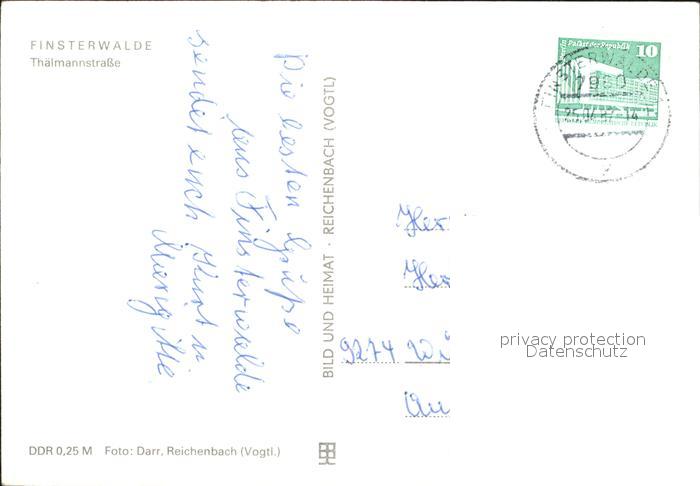 FINSTERWALDE
Thälmannstraße
Die besten Grüße
aus Finsterwalde
sendet euch Kurt u
BILD UND HEIMAT · REICHENBACH (VOGTL)
Palast der Republik 10
FINSTERWALDE
7980
Her
Her
9274 Wü
Au
privacy protection
Datenschutz
DDR 0,25 M Foto: Darr, Reichenbach (Vogtl.)